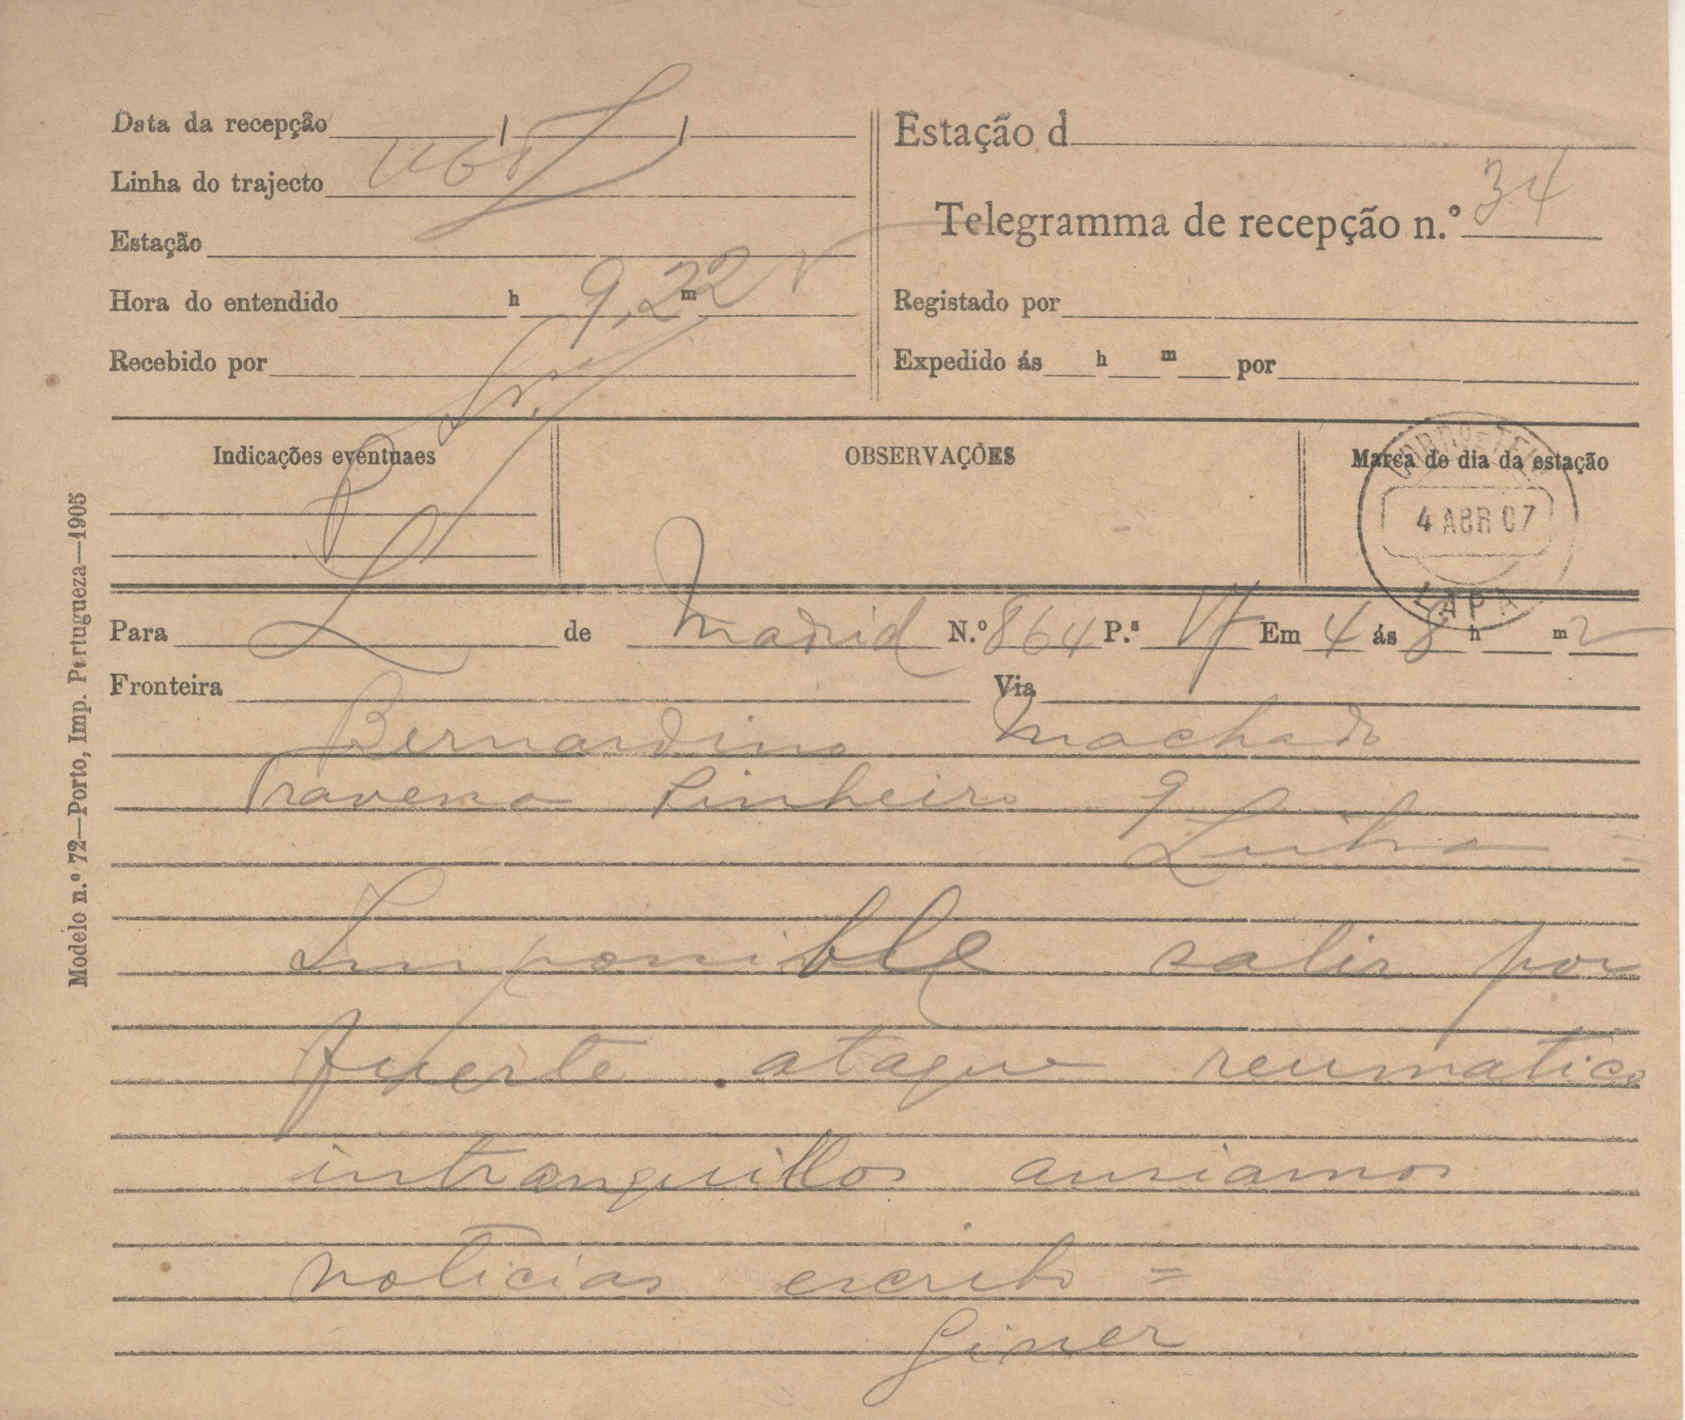 Data da recepção
Linha do trajecto
Estação
Hora do entendido h 9,22 m
Recebido por
Estação d
Telegramma de recepção n.º 34
Registado por
Expedido ás h m por
Indicações eventuaes
OBSERVAÇÕES
Marca de dia da estação
4 ABR 07
LAPA
Modelo n.º 72—Porto, Imp. Portugueza—1905
Para L de Madrid N.º 864 P.s 17 Em 4 ás 8 h m 2
Fronteira Via
Bernardino Machado
Travessa Pinheiro 9
Lisboa =
Impossible salir por
fuerte ataque reumatico
intranquillos ansiamos
noticias escribo =
Giner